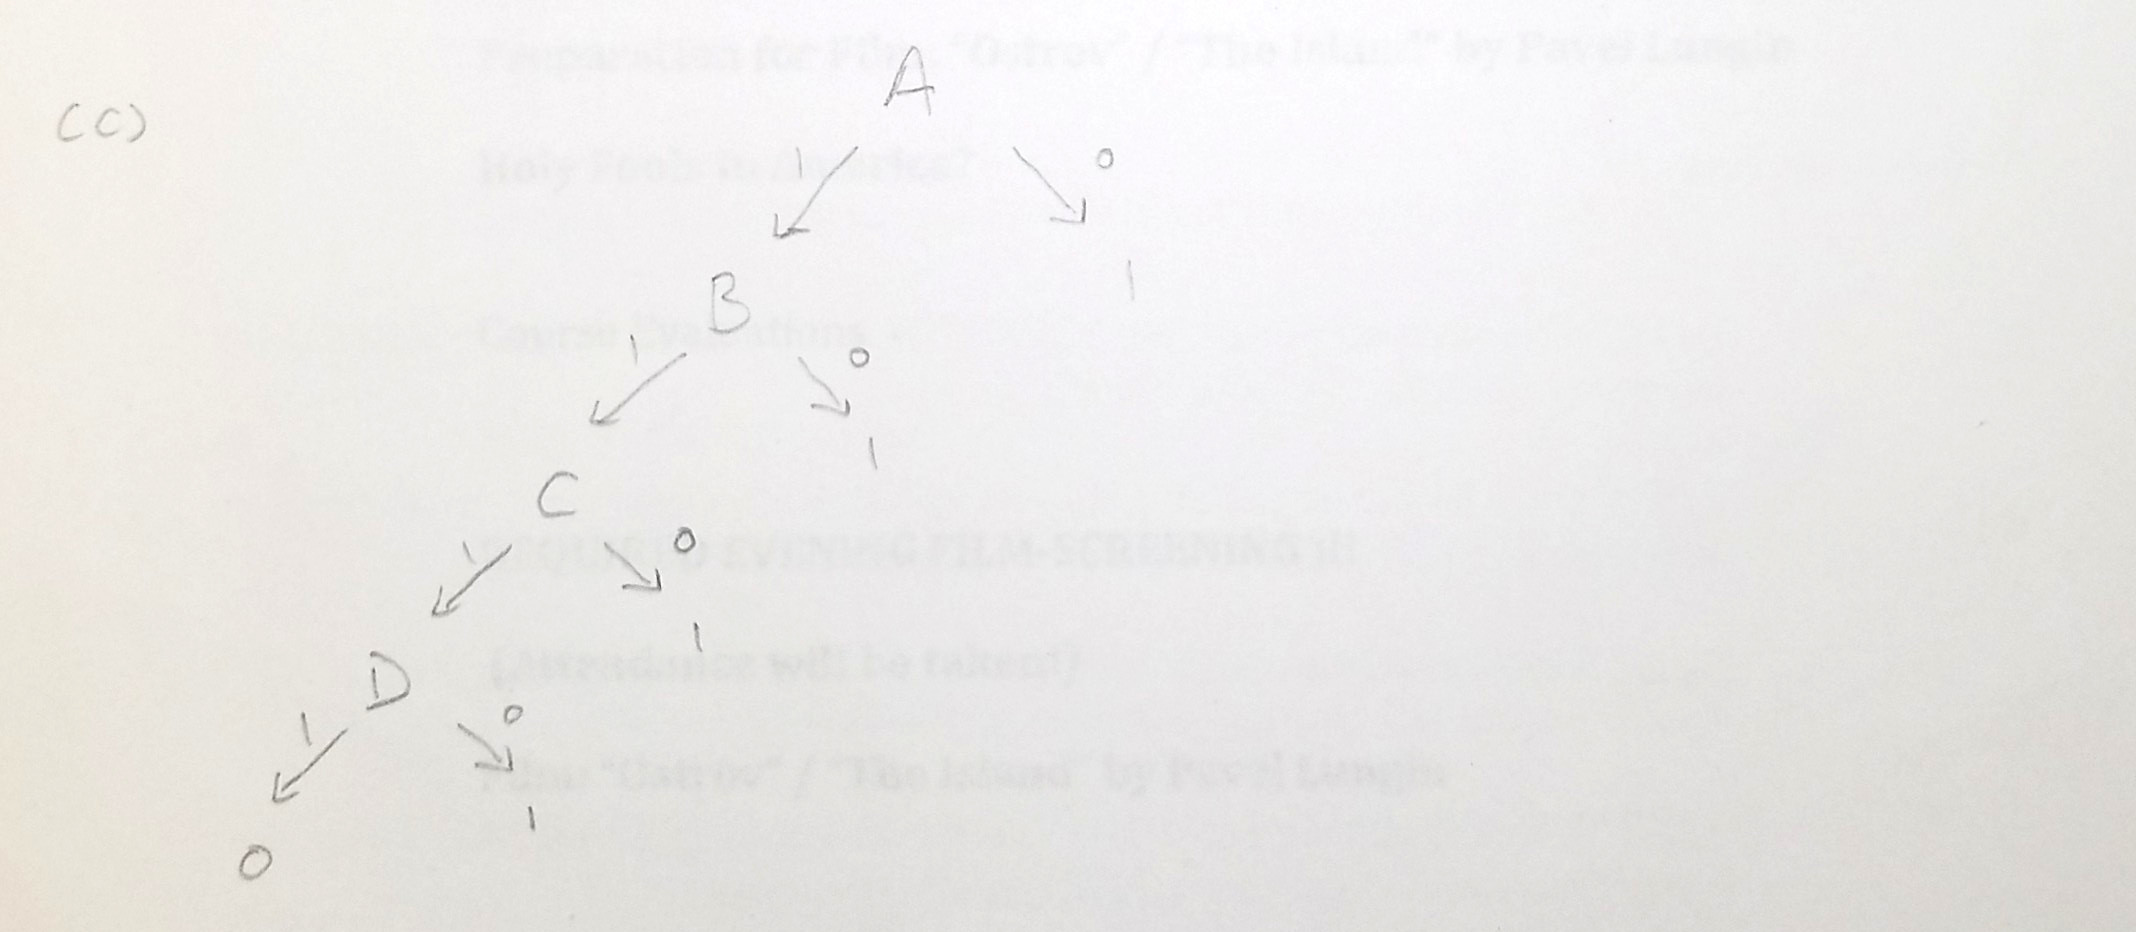 (C)
A
1 0
B 1
1 0
C 1
1 0
D 1
1 0
0 1
Preparation for Film: "Ostrov" / "The Island" by Pavel Lungin
Holy Fools in America?
Course Evaluations
REQUIRED EVENING FILM-SCREENING III
(Attendance will be taken!)
Film: "Ostrov" / "The Island" by Pavel Lungin